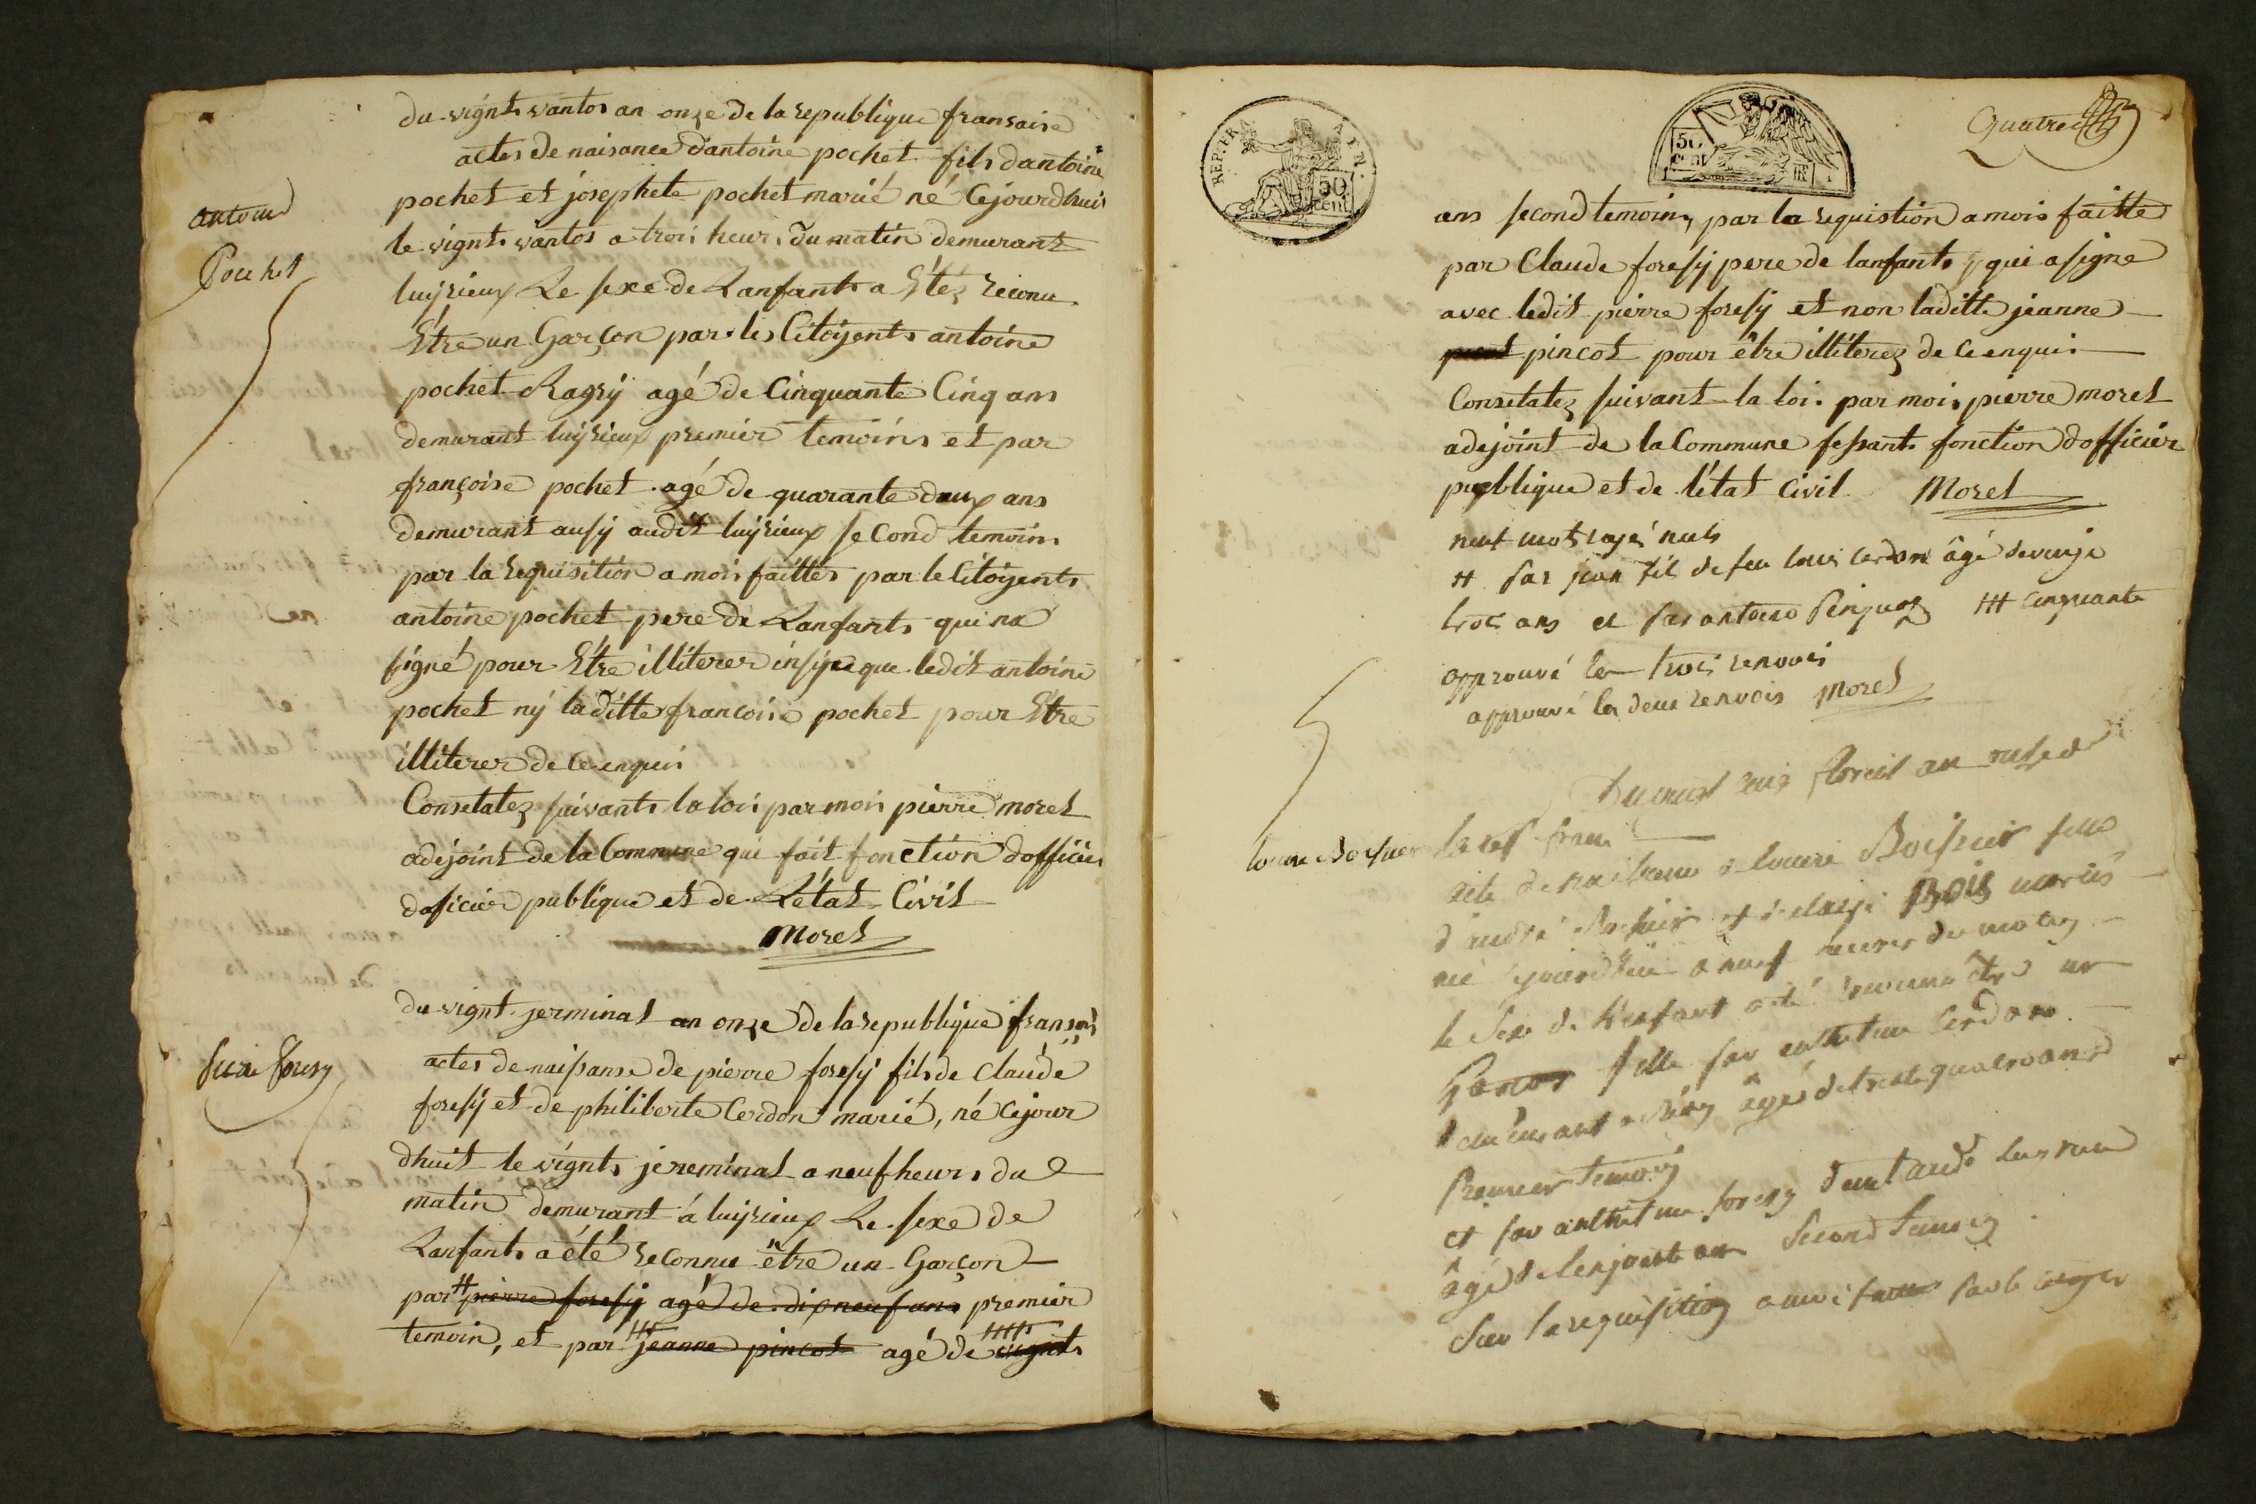 du vignt vantos an onze de la republique fransaise
actes de naisance d'antoine pochet fils dantoine
pochet et josephete pochet marié né Cejourdhuis
le vignt vantos a trois heurs du matin demurant
luijrieux Le sexe de Lanfants a Étéz reconu
Être un Garçon par les Citoijents antoine
pochet Ragrij agé de Cinquante Cinq ans
demurant luijrieux premier temoins et par
françoise pochet agé de quarante daux ans
demurant ausij audit luijrieux second temoins
par la requisition a mois faittes par le Citoijents
antoine pochet pere de Lanfants qui na
signé pour Être illiterer insij que ledit antoine
pochet nij laditte francoise pochet pour Être
illiterer de ce enquis
Consetatez suivants la lois par mois pierre moret
adejoint de la Commune qui fait fonction dofficier
doficier publique et de Létat Civil
Moret
antoine
Pochet
du vignt jerminal an onze de la republique fransais
actes de naissanse de pierre foresij fils de Claude
foresij et de philiberte Cerdon marié, né cejour
dhuit le vignts jereminal a neuf heurs du
matin demurant á luijrieux Le sexe de
Lanfants a été reconnu être un Garçon
par # pierre foresij agé de dixneuf ans premier
temoin, et par jeanne pincot agé de vignts
foresy
REP. FRA
50
cent
50
cent
Quatre
ans second temoins, par la requistion a mois faitte
par Claude foresij pere de lanfants qui a signe
avec ledit pierre foresij et non laditte jeanne
pincot pour être illiterez de ce enquis
Consetatez suivant la loi par mois pierre moret
adejoint de la Commune fessants fonction dofficier
publique et de létat Civil Moret
neuf mots rayés nuls
# par jean fils de feu louis cerdon âgé de
trois ans et par antoine Pinquoz ### cinquante
approuvé les trois renvois
approuvé les deux renvois Moret
Louise Boissier
floreal an onze de
la rep franc
acte de naissance de louise Boissier fille
d'andré Boissier et de Bois mariés
né ajourdhui a neuf heures du matin
le sexe de l'enfant a été reconnu être un
Garcon fille par anthelme Cerdon
demeurant âgé de trente quatre ans
Premier temoin
et par anthelme foresy
âgé de Second temoin
Sur la requisition a moi par le citoyen